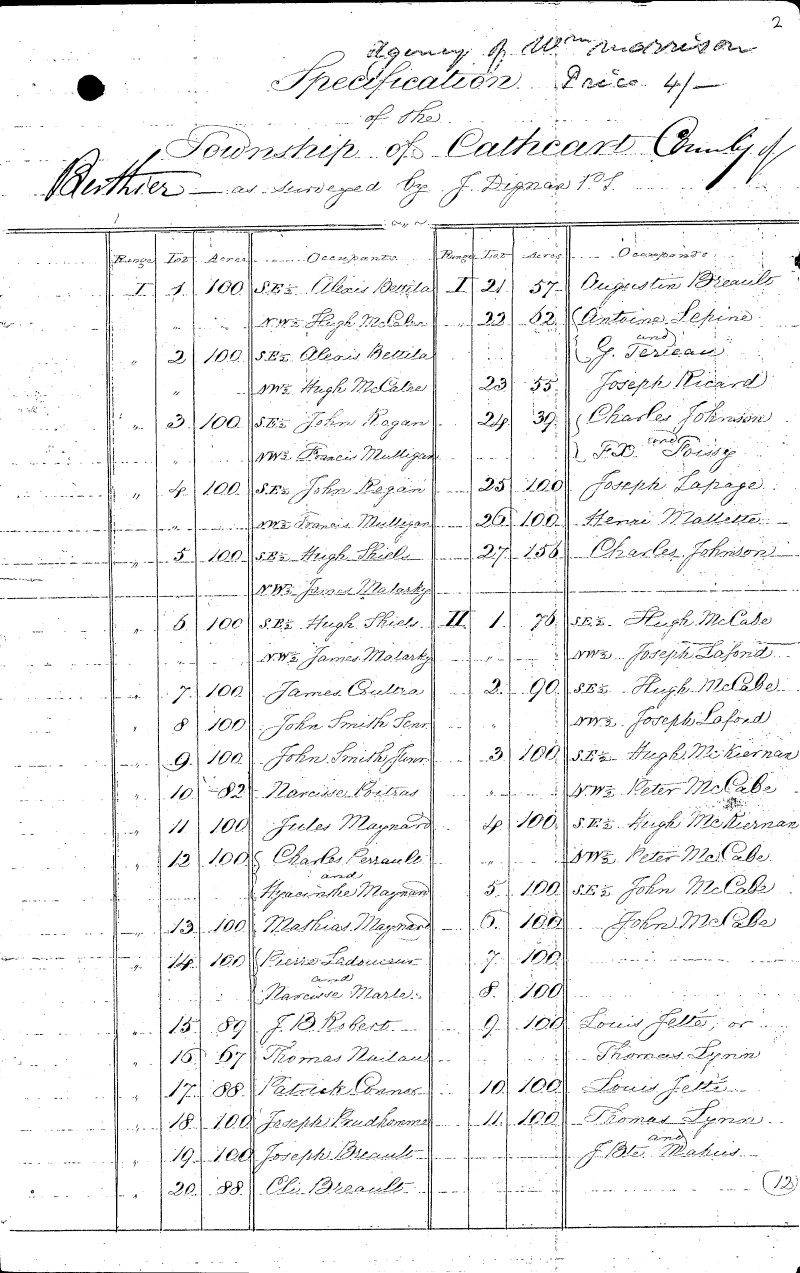 2
Agency of Wm Morrison
Specification Price 4/-
of the
Township of Cathcart County of
Berthier — as surveyed by J. Dignan P.L.S.
Range Lot Acres Occupants
I 1 100 S.E½ Alexis Bettila
" " N.W½ Hugh McCabe
" 2 100 S.E½ Alexis Bettila
" N.W½ Hugh McCabe
" 3 100 S.E½ John Regan
" " N.W½ Francis Mulligan
" 4 100 S.E½ John Regan
" " N.W½ Francis Mulligan
" 5 100 S.E½ Hugh Shiels
N.W½ James Malarky
" 6 100 S.E½ Hugh Shiels
" " N.W½ James Malarky
" 7 100 James Coultra
" 8 100 John Smith Senr
" 9 100 John Smith Junr
" 10 82 Narcisse Poitras
" 11 100 Jules Maynard
" 12 100 { Charles Perrault
and
Hyacinthe Maynard
" 13 100 Mathias Maynard
" 14 100 { Pierre Ladouceur
and
Narcisse Marle
" 15 89 J. B. Robert
" 16 67 Thomas Nadau
" 17 88 Patrick Connor
" 18 100 Joseph Prudhomme
" 19 100 Joseph Breault
" 20 88 Eli Breault
Range Lot Acres Occupants
I 21 57 Augustin Breault
" 22 62 { Antoine Lepine
and
G. Terieau
23 55 Joseph Ricard
24 39 { Charles Johnson
and
F.X. Foissy
25 100 Joseph Lapage
26 100 Henri Mallette
27 156 Charles Johnson
II 1 76 S.E½ Hugh McCabe
" N.W½ Joseph Lafond
2 90 S.E½ Hugh McCabe
" N.W½ Joseph Lafond
3 100 S.E½ Hugh McKiernan
" N.W½ Peter McCabe
4 100 S.E½ Hugh McKiernan
" N.W½ Peter McCabe
5 100 S.E½ John McCabe
6 100 John McCabe
7 100
8 100
9 100 Louis Jetté, or
Thomas Lynn
10 100 Louis Jetté
11 100 Thomas Lynn
and
J. Bte Mahies
12